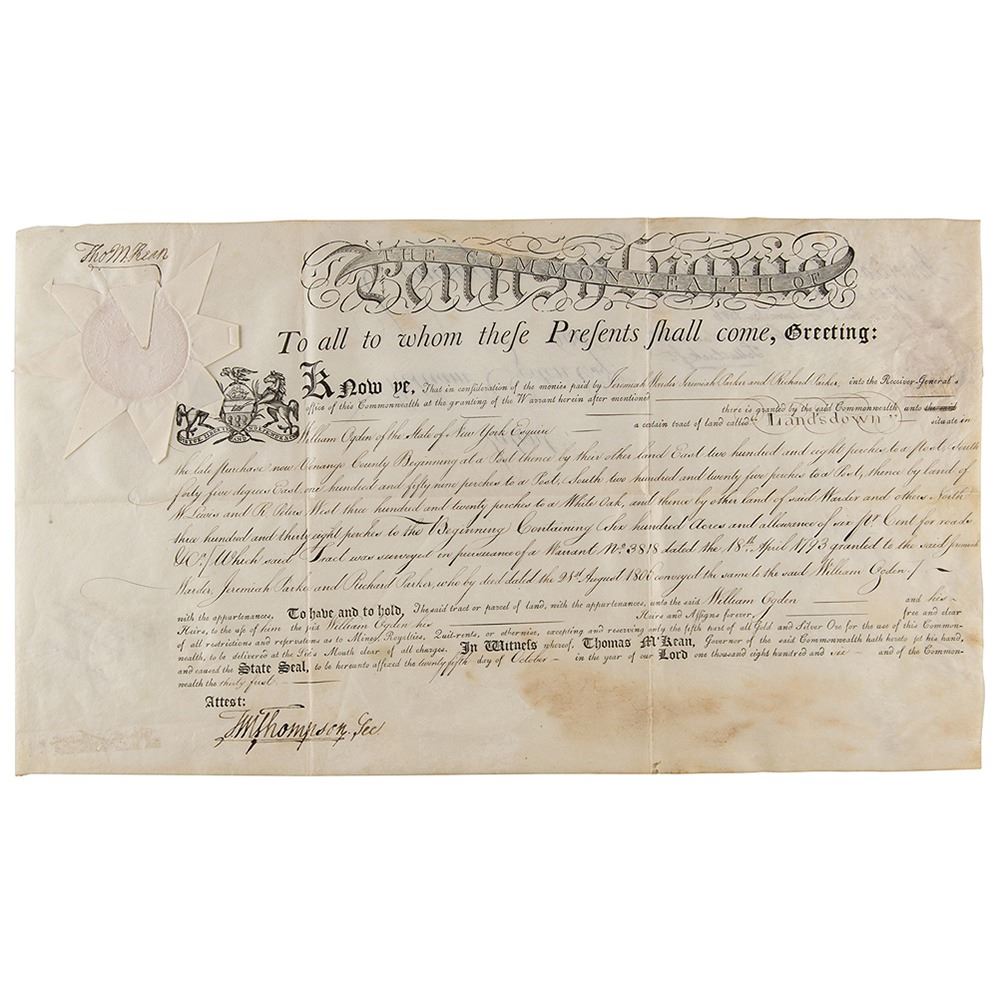 Tho M:Kean
THE COMMONWEALTH OF
Pennsylvania
To all to whom theſe Preſents ſhall come, Greeting:
Know ye, That in conſideration of the monies paid by Jeremiah Warder Jeremiah Parker and Richard Parker, into the Receiver-General's
office of this Commonwealth at the granting of the Warrant herein after mentioned there is granted by the ſaid Commonwealth unto the said
William Ogden of the State of New York Esquire a certain tract of land called "Landsdown" situate in
the late purchase now Venango County Beginning at a Post thence by their other land East two hundred and eight perches to a Post, South
forty five degrees East, one hundred and fifty nine perches to a Post, South two hundred and twenty five perches to a Post, thence by land of
W. Lewis and R. Peters West three hundred and twenty perches to a White Oak, and thence by other land of said Warder and others North
three hundred and thirty eight perches to the Beginning Containing Six hundred Acres and allowance of six pr Cent for roads
&c; Which said Tract was surveyed in pursuance of a Warrant No. 3818 dated the 18th April 1793 granted to the said Jeremiah
Warder, Jeremiah Parker and Richard Parker, who by deed dated the 28st August 1806 conveyed the same to the said William Ogden
with the appurtenances. To have and to hold, The ſaid tract or parcel of land, with the appurtenances, unto the ſaid William Ogden and his
Heirs, to the uſe of him the ſaid William Ogden his Heirs and Aſſigns forever, free and clear
of all reſtrictions and reſervations as to Mines, Royalties, Quit-rents, or otherwiſe, excepting and reſerving only the fifth part of all Gold and Silver Ore for the uſe of this Common-
wealth, to be delivered at the Pit's Mouth clear of all charges. In Witneſs whereof, Thomas M'Kean, Governor of the ſaid Commonwealth hath hereto ſet his hand,
and cauſed the State Seal, to be hereunto affixed the twenty fifth day of October in the year of our Lord one thouſand eight hundred and six and of the Common-
wealth the thirty first.
Atteſt:
Thompson, Sec